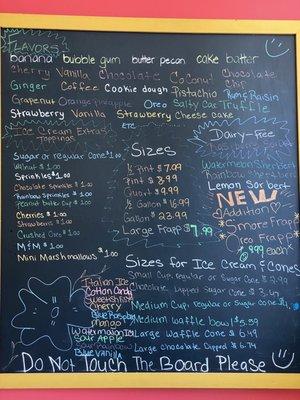 FLAVORS
banana bubble gum butter pecan cake butter
Cherry Vanilla Chocolate Coconut Chocolate Chip
Ginger Coffee Cookie dough Pistachio Rum & Raisin
Grapenut Orange Pineapple Oreo Salty Car Truffle
Strawberry Vanilla Strawberry Cheese Cake
ETC
Ice Cream Extras
Toppings
Sugar or Regular Cone $1.00
Walnut $1.00
Sprinkles $1.00
Chocolate Sprinkles $1.00
Rainbow Sprinkles $1.00
Peanut Butter Cup $1.00
Cherries $1.00
Strawberries $1.00
Crushed Oreo $1.00
M&M $1.00
Mini Marshmallows $1.00
Sizes
1/2 Pint $7.99
Pint $8.99
Quart $9.99
1/2 Gallon $16.99
Gallon $23.99
Large Frapp $7.99
Dairy-Free
Watermelon Sherbert
Rainbow Sherbert
Lemon Sorbert
NEW
Addition
Smore Frapp
Oreo Frapp
9.99 each
Sizes for Ice Cream & Cones
Small Cup, Regular or Sugar Cone $
Chocolate Dipped Sugar Cone $
Medium Cup, Regular or Sugar Cone
Medium Waffle bowl $5.59
Large Waffle Cone $6.49
Large Chocolate Dipped $6.79
Italian Ice
Cotton Candy
Swedish Fish
Cherry
Blue Raspberry
mango
Watermelon
Sour Apple
Sour Rainbow
Blue Vanilla
Do Not Touch The Board Please